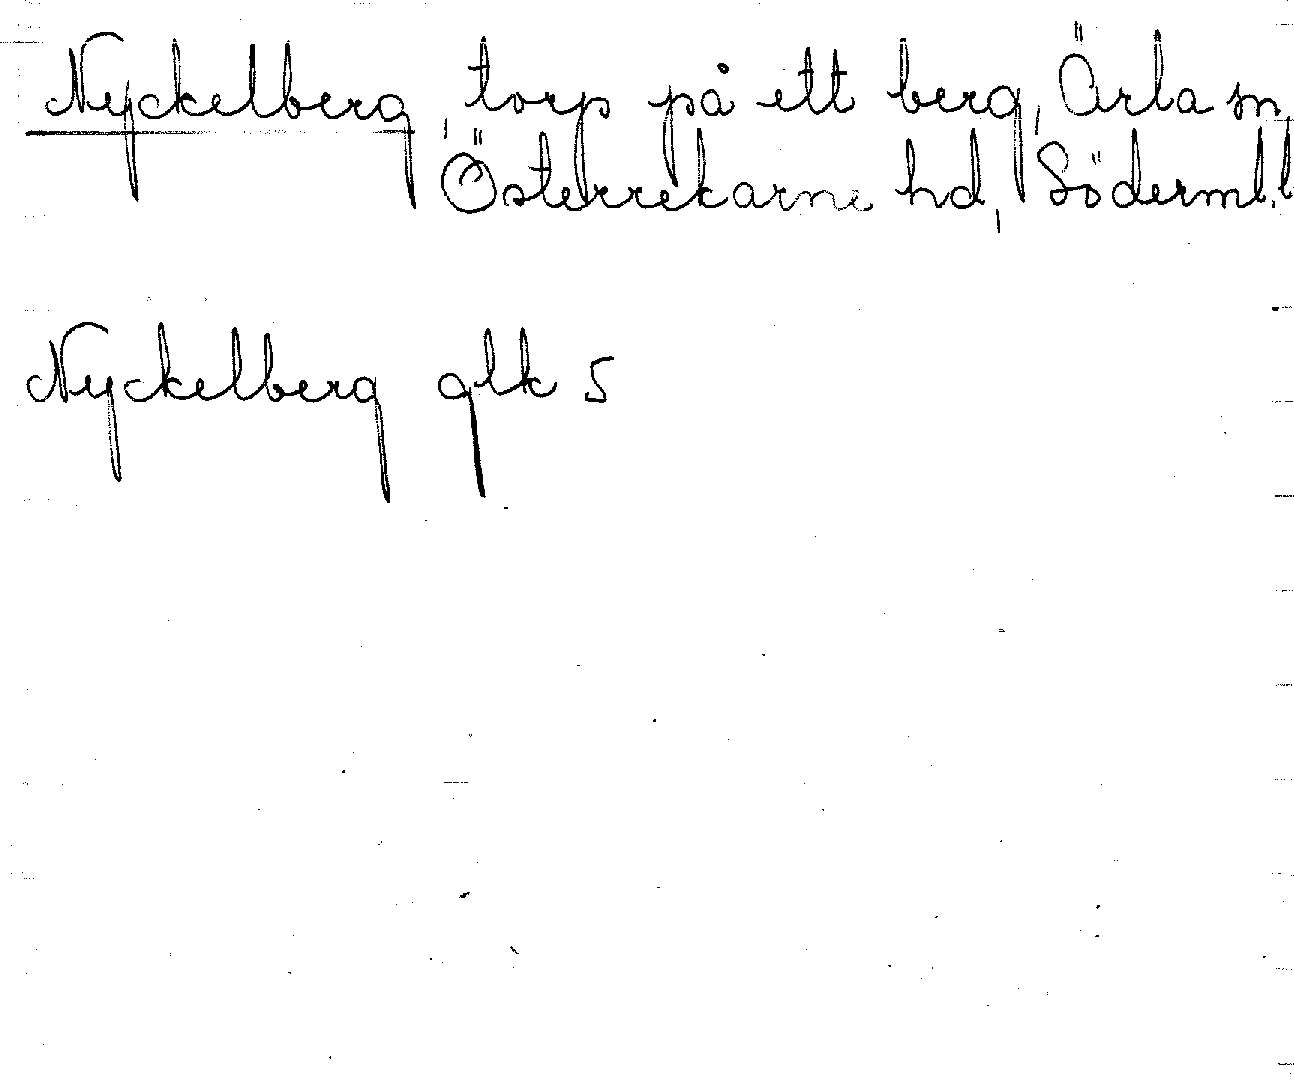 Nyckelberg, torp på ett berg, Ärla sn,
Österrekarne hd, Söderml. l
Nyckelberg glk 5